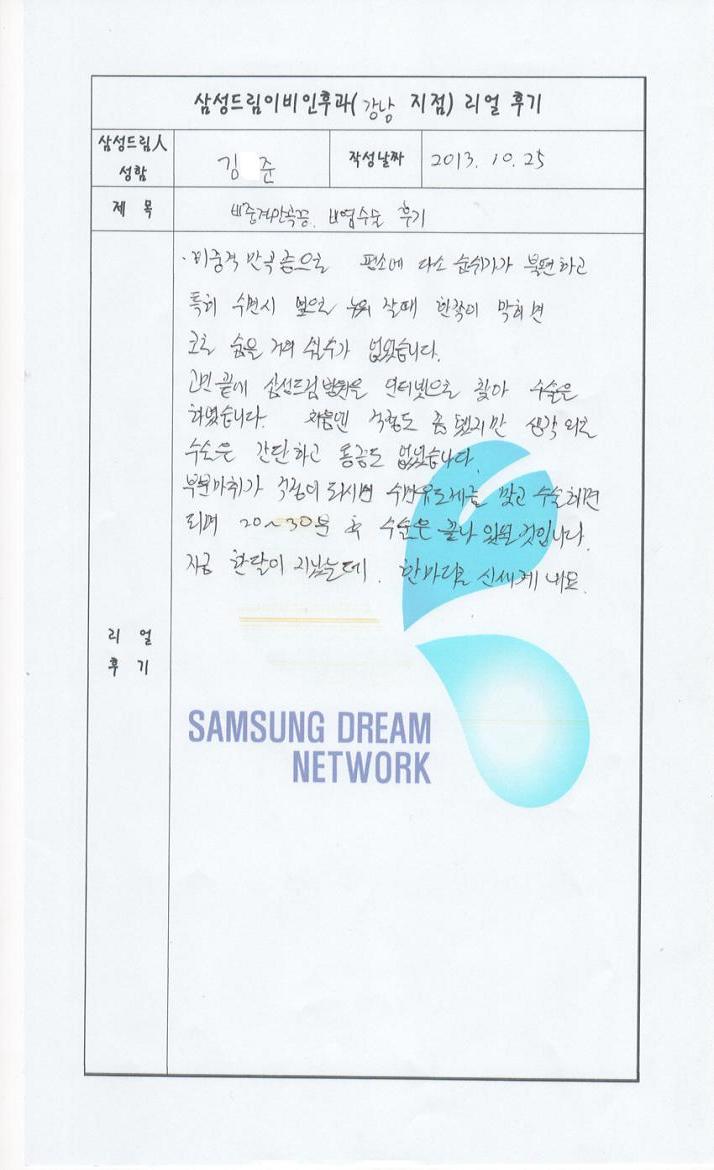 삼성드림이비인후과(강남 지점) 리얼 후기
삼성드림人 성함
김 준
작성날짜
2013. 10. 25
제 목
비중격만곡증, 비염수술 후기
리 얼 후 기
·비중격 만곡증으로 평소에 다소 숨쉬기가 불편하고
특히 수면시 옆으로 누워 잘때 한쪽이 막히면
코로 숨을 거의 쉴수가 없었습니다.
고민 끝에 삼성드림병원을 인터넷으로 찾아 수술은
하였습니다. 처음엔 걱정도 좀 됐지만 생각 외로
수술은 간단하고 통증도 없었습니다.
부분마취가 걱정이 되시면 수면유도제를 맞고 수술하면
되며 20~30분 후 수술은 끝나 있을 것입니다.
지금 한달이 지났는데. 한마디로 신세계 네요.
SAMSUNG DREAM
NETWORK